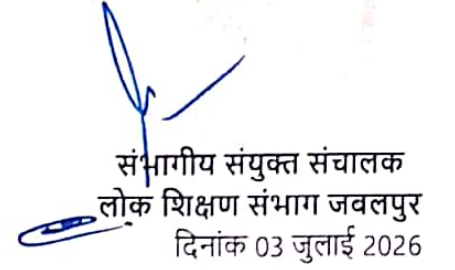 संभागीय संयुक्त संचालक
लोक शिक्षण संभाग जवलपुर
दिनांक 03 जुलाई 2026